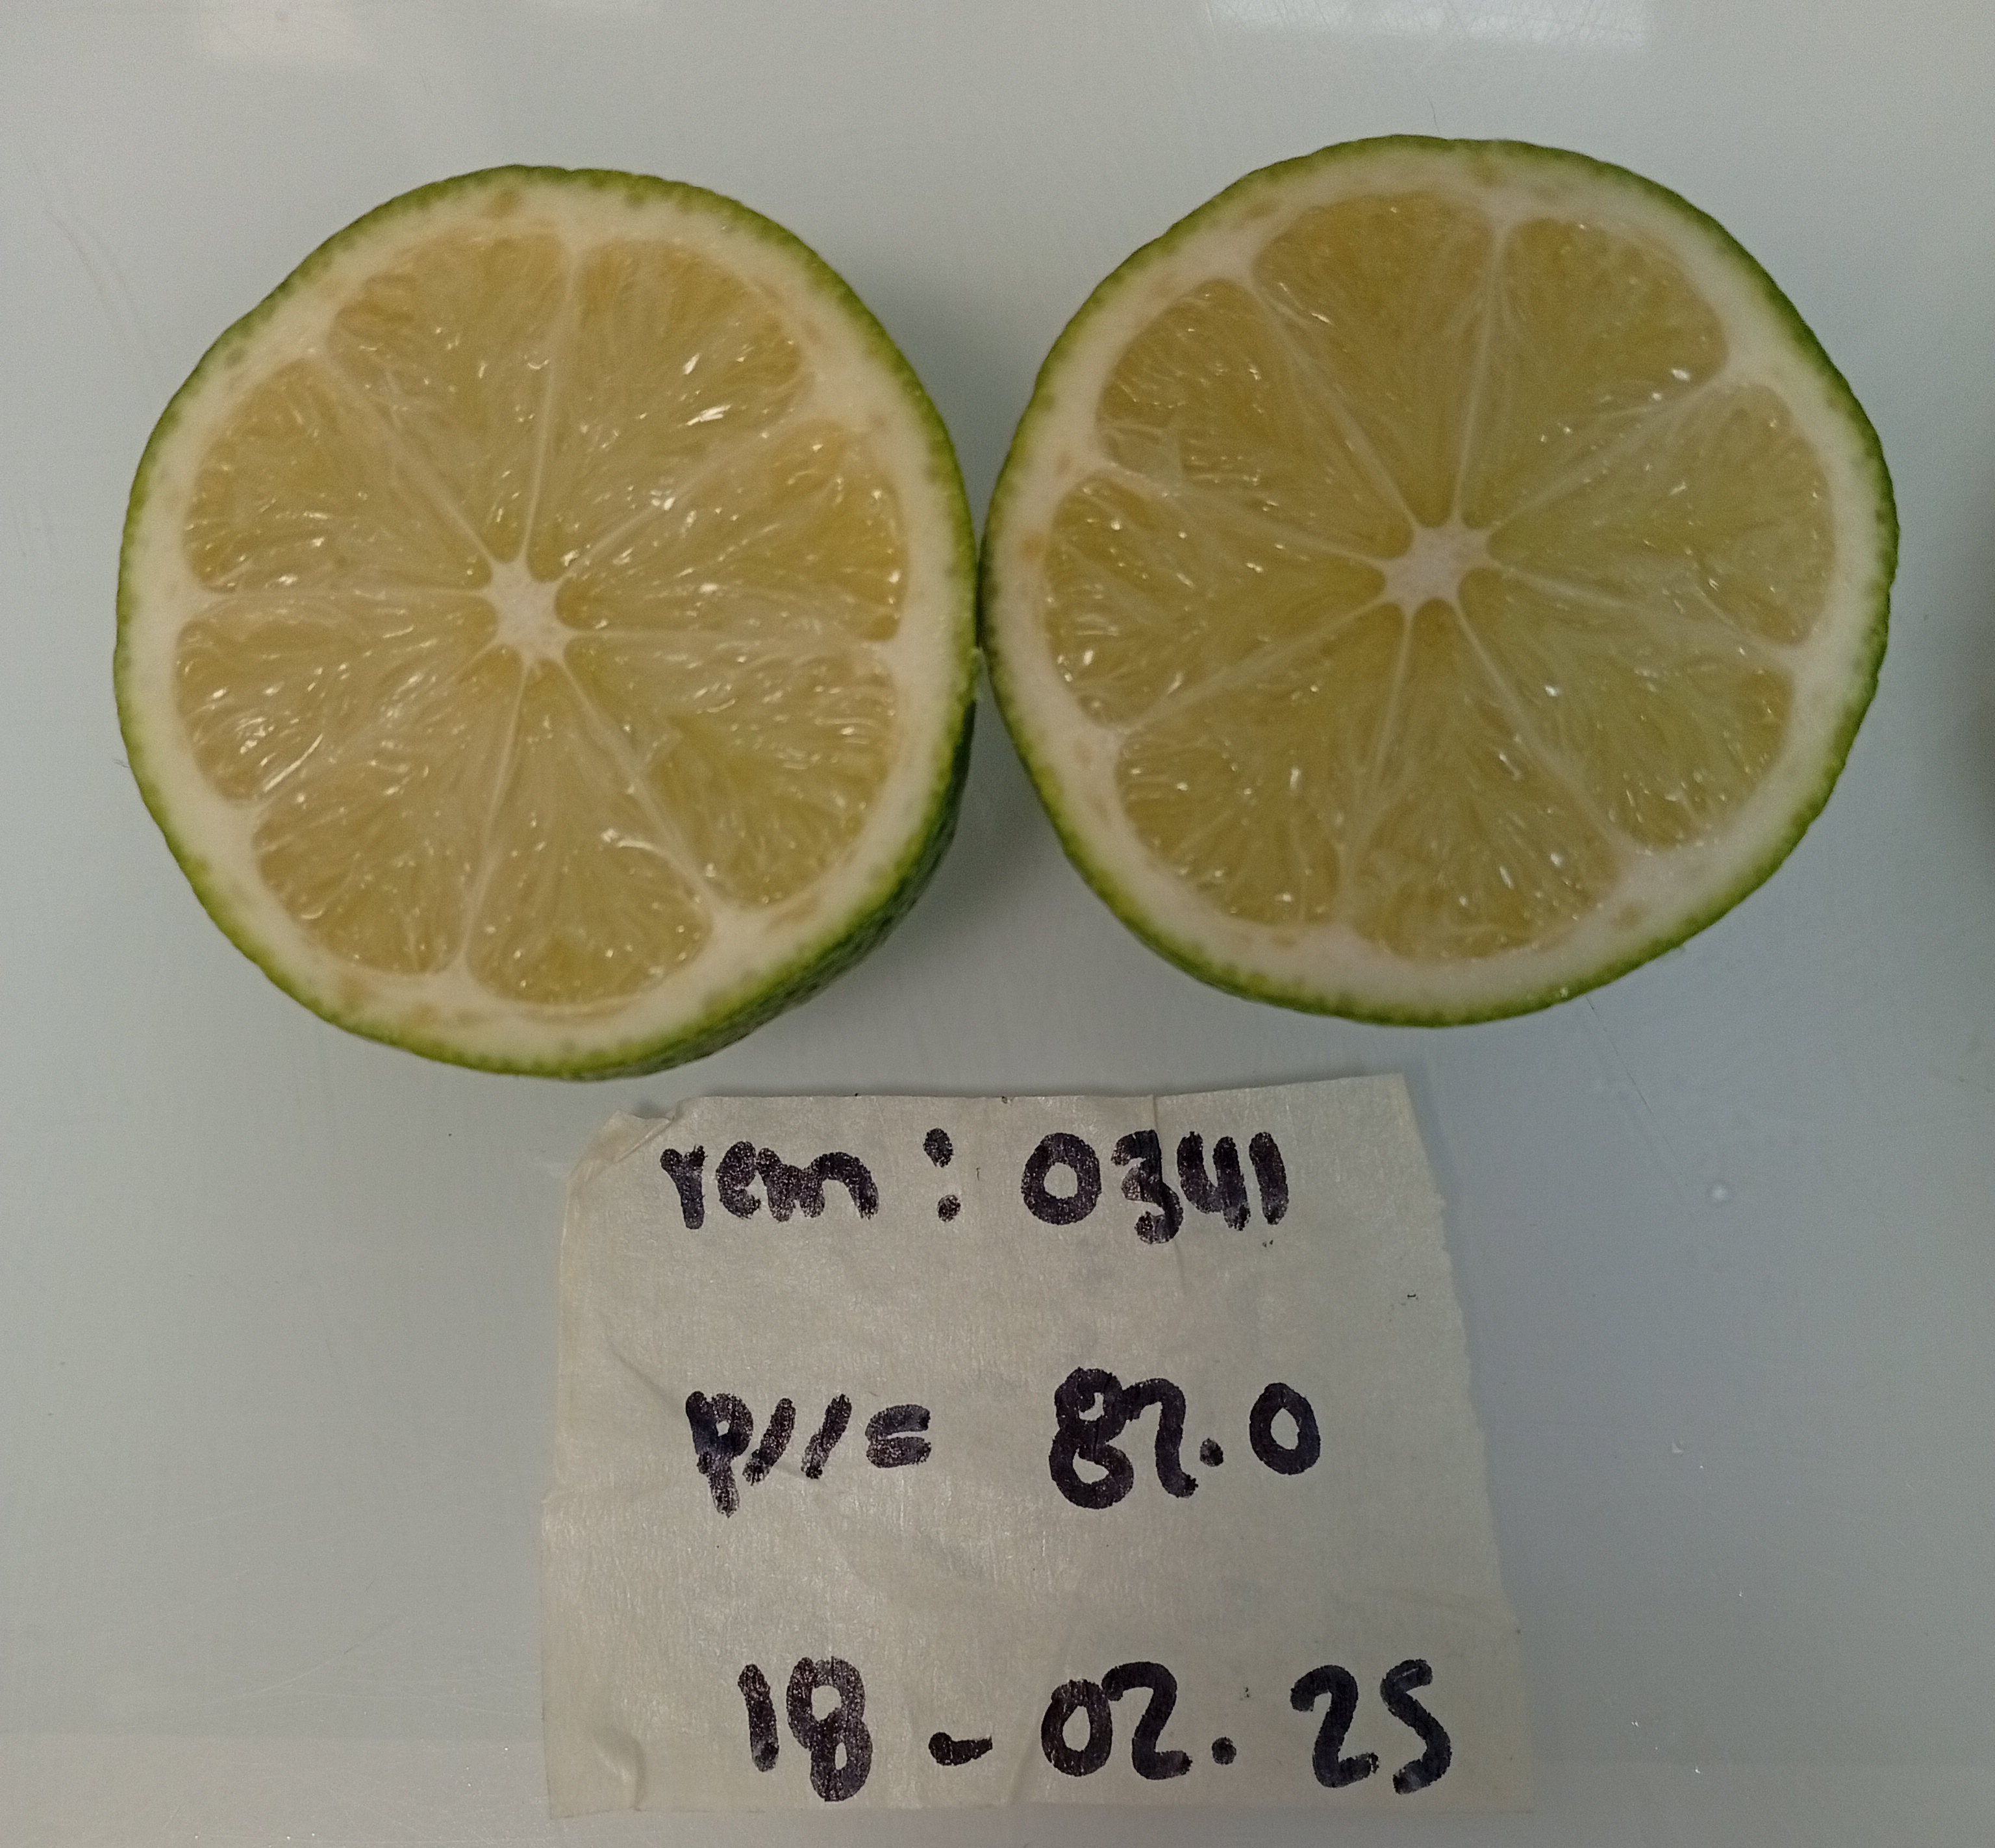 rem: 0341
p//= 82.0
18-02.25